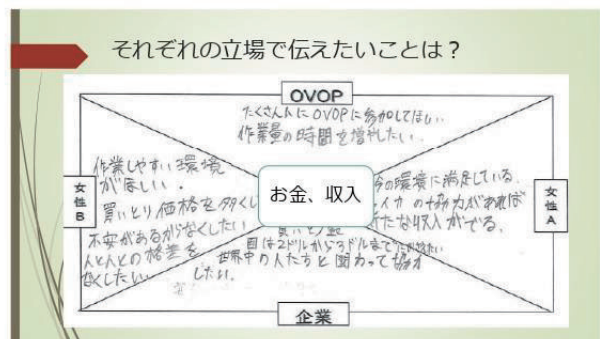 それぞれの立場で伝えたいことは?
OVOP
たくさん人にOVOPに参加してほしい
作業量の時間を増やしたい.
女性B
作業しやすい環境
がほしい.
買いとり価格を多くし
不安があるがなくしたい
人と人との格差を
なくしたい
お金、収入
今の環境に満足している.
の協力があれば
たな収入がでる.
女性A
目は2ドルから3ドルまで
世界中の人たちと関わって協力
したい.
企業